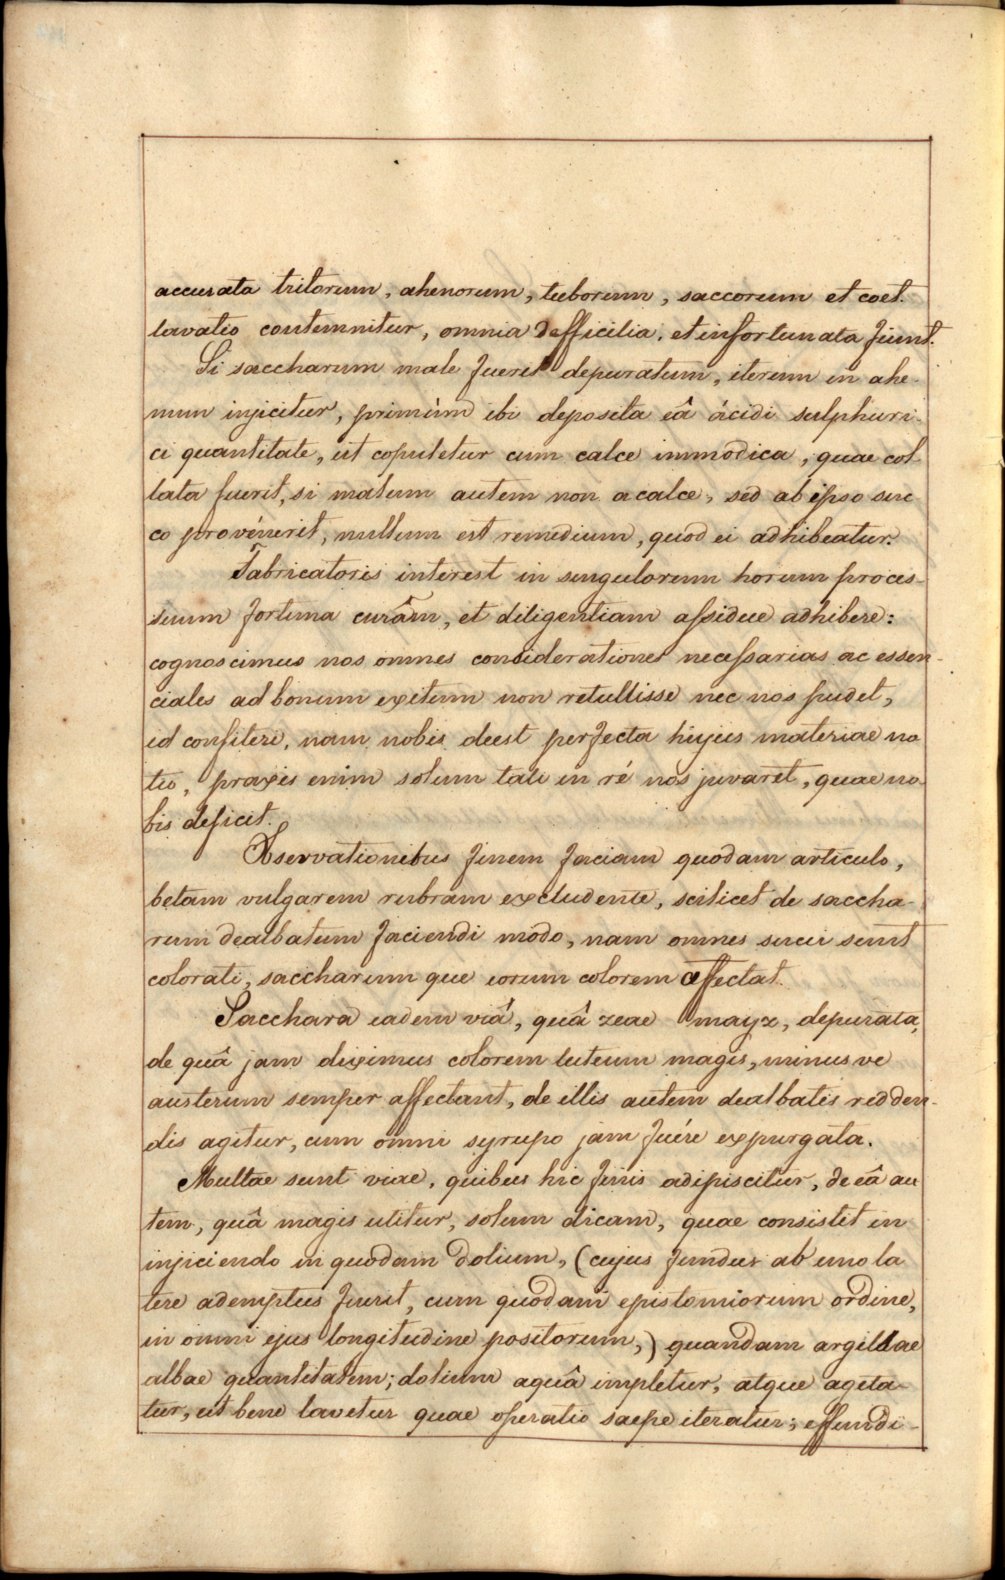 accurata tritorum, ahenorum, tuborum, saccorum et coet.
lavatio contemnitur, omnia difficilia, et infortunata fiunt.
Si saccharum male fuerit depuratum, iterum in ahe-
num injicitur, primùm ibi deposita eâ ácidi sulphuri-
ci quantitate, ut copuletur cum calce immodica, quae col
lata fuerit, si malum autem non a calce, sed ab ipso suc
co provénerit, nullum est remedium, quod ei adhibeatur.
Fabricatoris interest in singulorum horum proces-
suum fortuna curâm, et diligentiam assidue adhibere:
cognoscimus nos omnes considerationes necessarias ac essen-
ciales ad bonum exitum non retullisse nec nos pudet,
id confiteri, nam nobis deest perfecta hujus materiae no
tio, praxis enim solum tali in ré nos juvaret, quae no-
bis deficit.
Observationibus finem faciam quodam articulo,
betam vulgarem rubram excludente, scilicet de saccha-
rum dealbatum faciendi modo, nam omnes succi sunt
colorati, saccharum que eorum colorem affectat.
Sacchara eadem viâ, quâ zeae mayz, depurata,
de quâ jam diximus colorem luteum magis, minus ve
austerum semper affectant, de illis autem dealbatis redden-
dis agitur, cum omni syrupo jam fuére expurgata.
Multae sunt viae, quibus hic finis adipiscitur, de eâ au
tem, quâ magis utitur, solum dicam, quae consistit in
injiciendo in quodam dolium, (cujus fundus ab uno la
tere ademptus fuerit, cum quodam epistomiorum ordine,
in omni ejus longitudine positorum,) quandam argillae
albae quantitatem; dolium aquâ impletur, atque agita-
tur, ut bene lavetur quae operatio saepe iteratur; effundi-